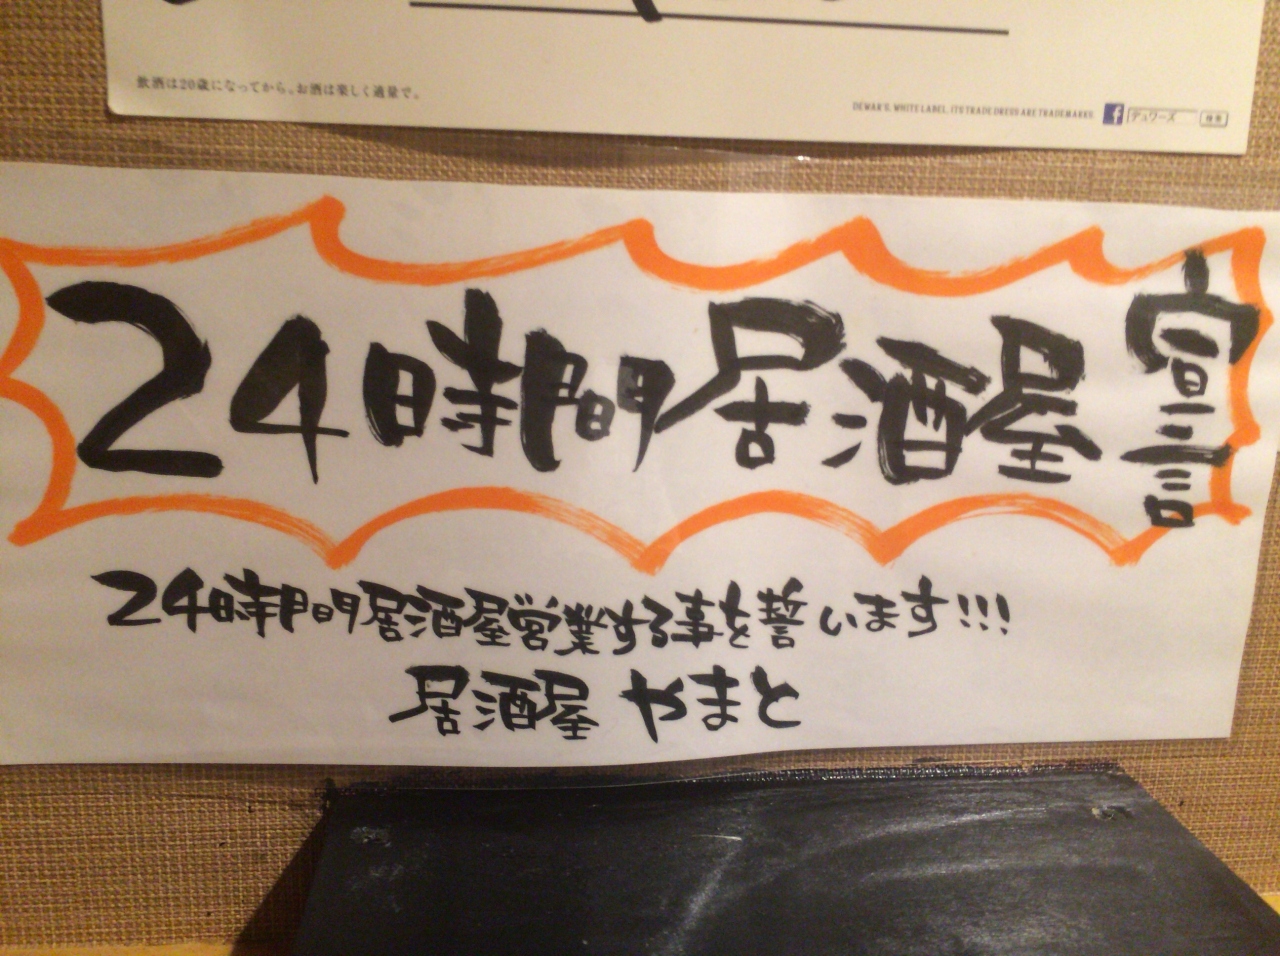 飲酒は20歳になってから。お酒は楽しく適量で。
DEWAR'S, WHITE LABEL, ITS TRADE DRESS ARE TRADEMARKS.
f デュワーズ 検索
24時間居酒屋宣言
24時間居酒屋営業する事を誓います!!!
居酒屋 やまと